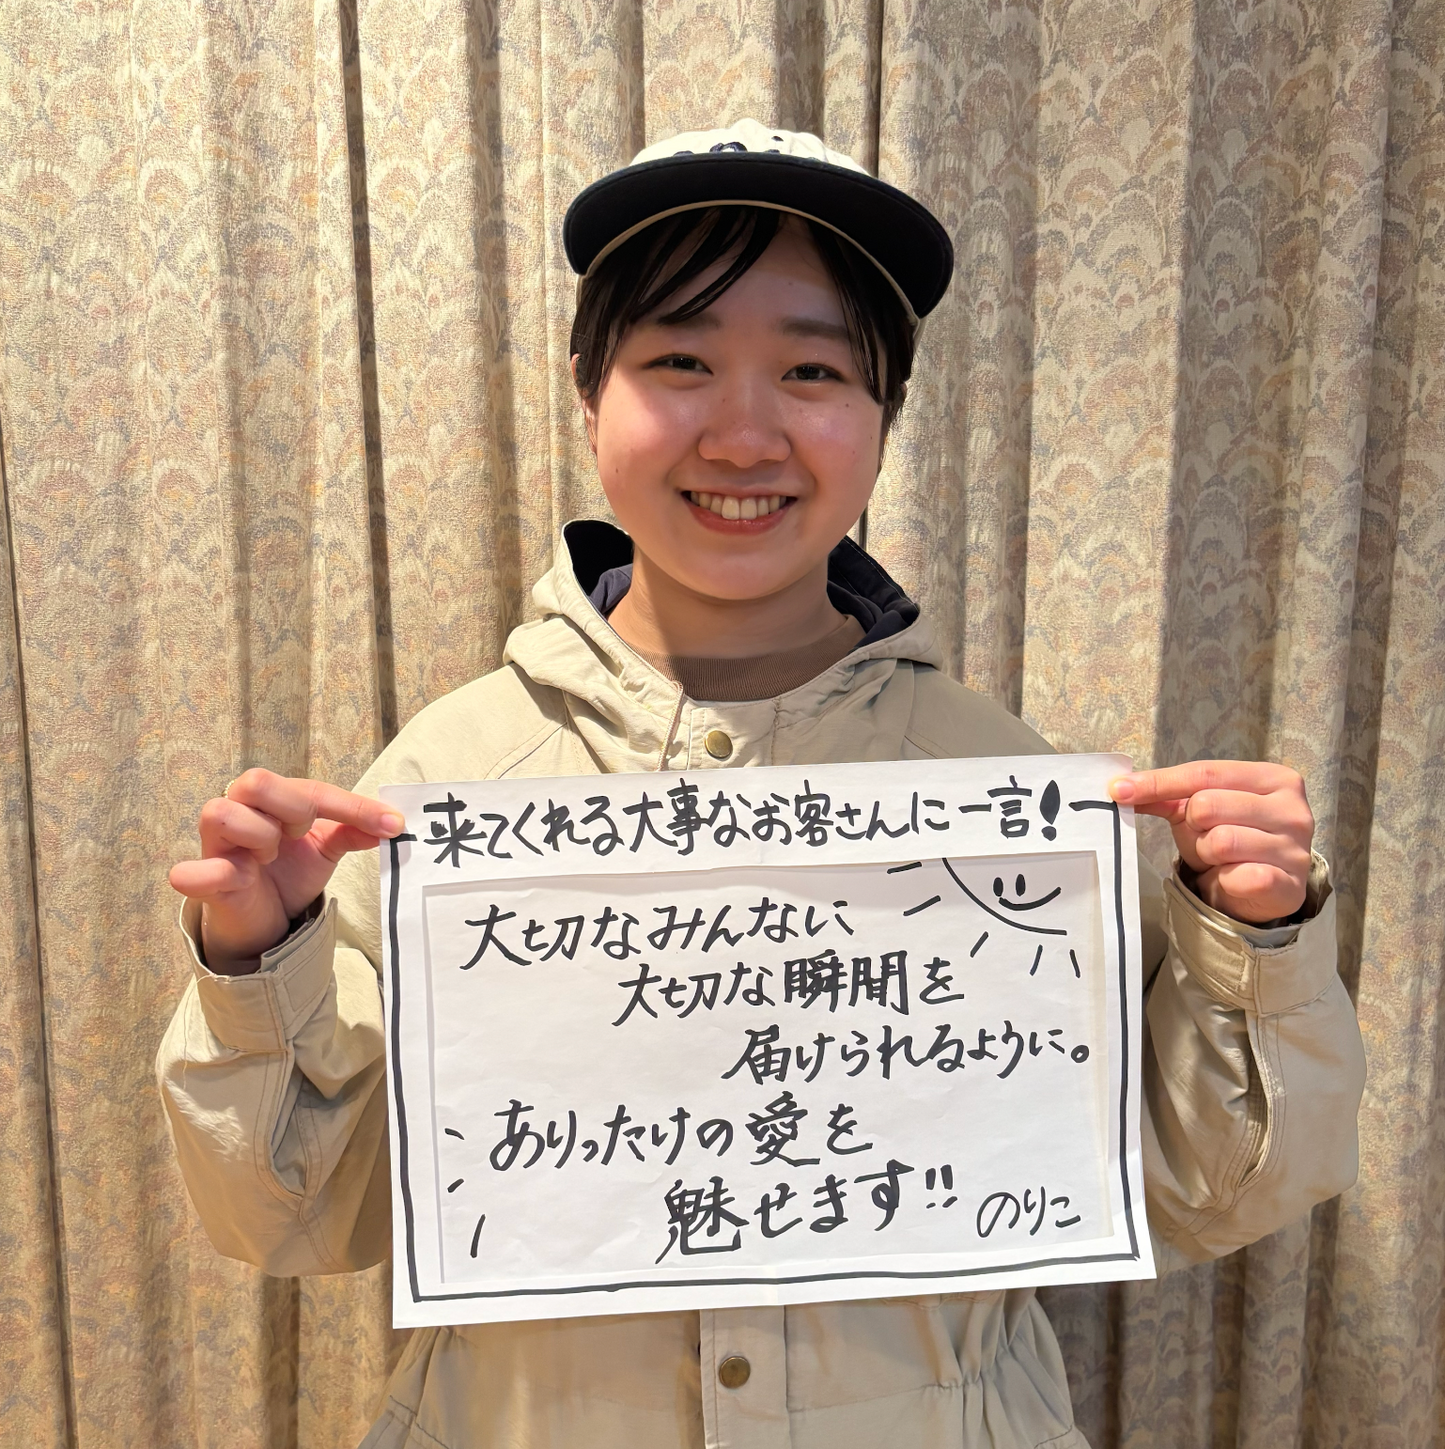 来てくれる大事なお客さんに一言!
大切なみんなに
大切な瞬間を
届けられるように。
ありったけの愛を
魅せます!!
のりこ